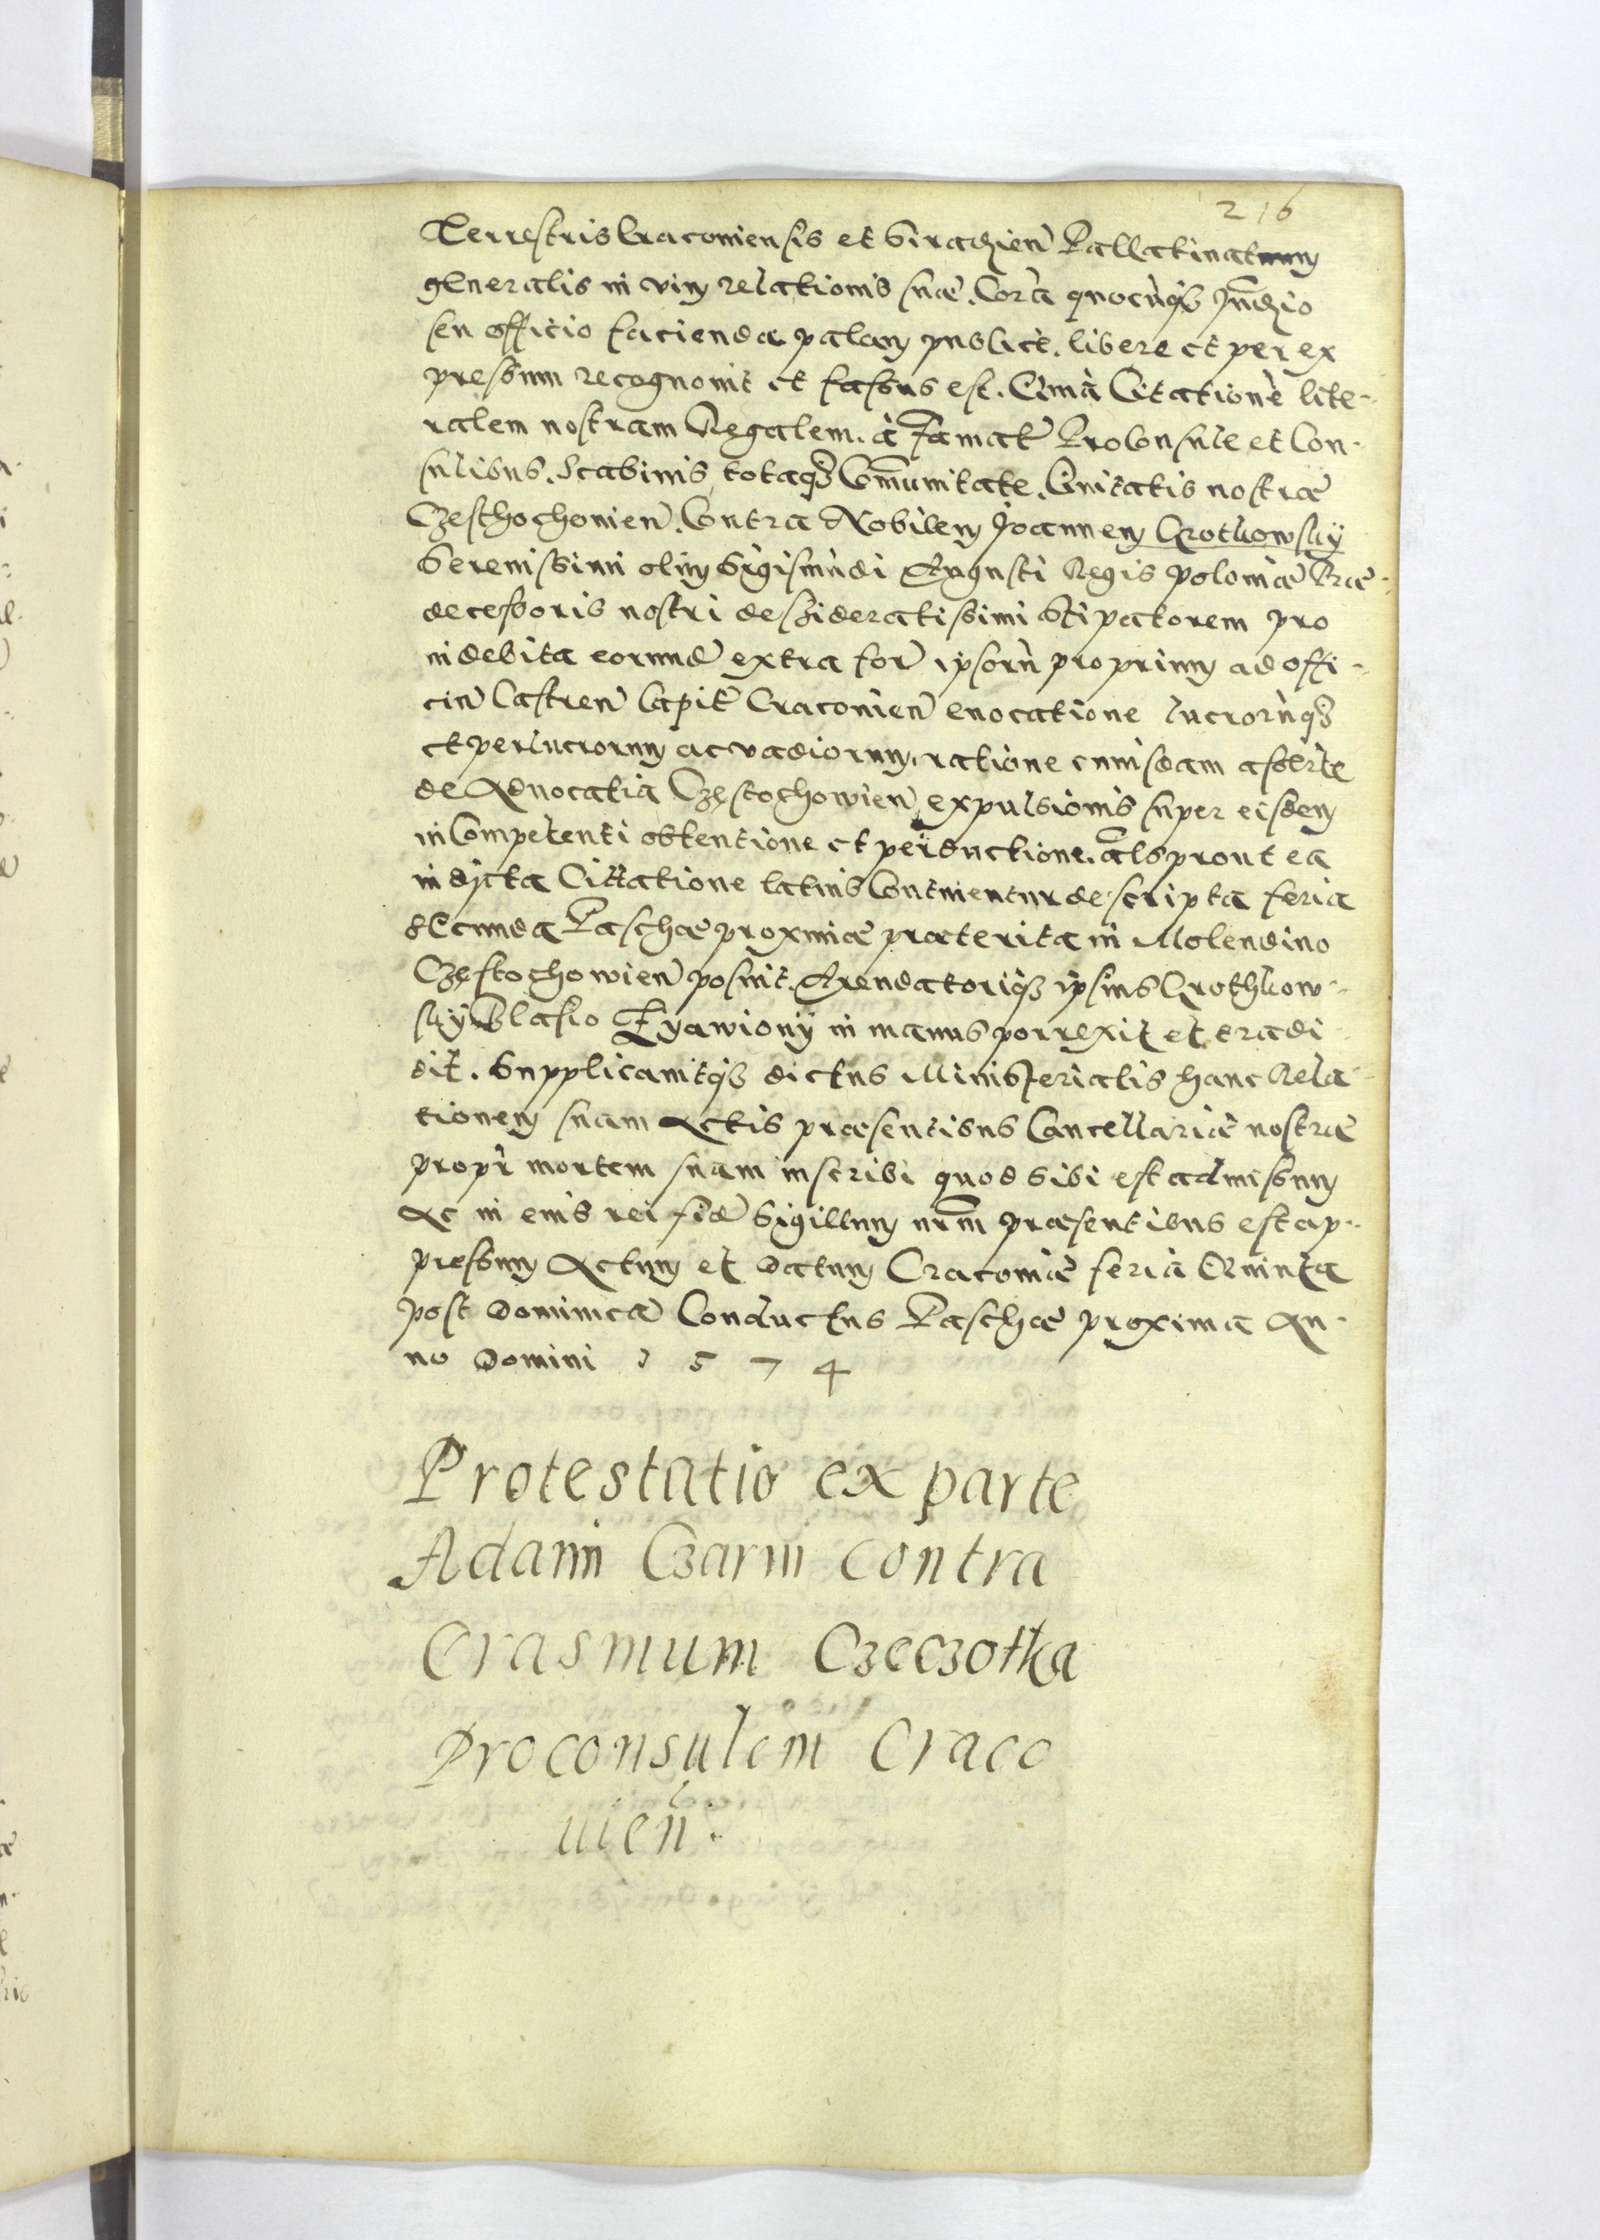 216
Terrestris Cracoviensis et Siradzien̄ Pallatinatuum
generalis in vim relationis suæ. Corā quocūqʒ Iudicio
seu officio facienda palam publice. libere et per ex
pressum recognovit et fassus est. Quia Citationē lite-
ralem nostram Regalem. à Famat̄ Proconsule et Con-
sulibus. Scabinis totaqʒ Cōmunitate. Civitatis nostræ
Czesthochovien̄. Contra Nobilem Joannem Crotkowsky
Serenissimi olim Sigismūdi Augusti Regis Poloniæ Præ-
decessoris nostri desideratissimi Stipatorem pro
indebita eorund̄ extra for̄ ipsorū proprium ad offi-
ciu̅ Castren̄ Capit̄ Cracovien̄ evocatione lucrorūqʒ
et perlucrorum ac vadiorum. ratione cuiusdam assertæ
de Advocatia Czestochowien̄ expulsionis super eisdem
in Competenti obtentione et perductione. āls prout ea
in dicta Cittatione latius Continentur descripta feria
secunda Paschæ proximæ præterita in Molendino
Czestochowien̄ posuit. Arendatoriqʒ ipsius Crothkow-
sky Blasio Lyawiony in manus porrexit et tradi
dit. Supplicavitqʒ dictus Ministerialis hanc Rela-
tionem suam Actis præsentibus Cancellariæ nostræ
propt̄ mortem suam inscribi quod sibi est admissum
Ac in eius rei fidē Sigillum nr̄m præsentibus est ap-
pressum Actum et Datum Cracoviæ feria Quinta
post Dominicā Conductus Paschæ proxima An-
no Domini 1 5 7 4
Protestatio ex parte
Adami Czarni contra
Erasmum Czeczotka
Proconsulem Craco
vien̄.